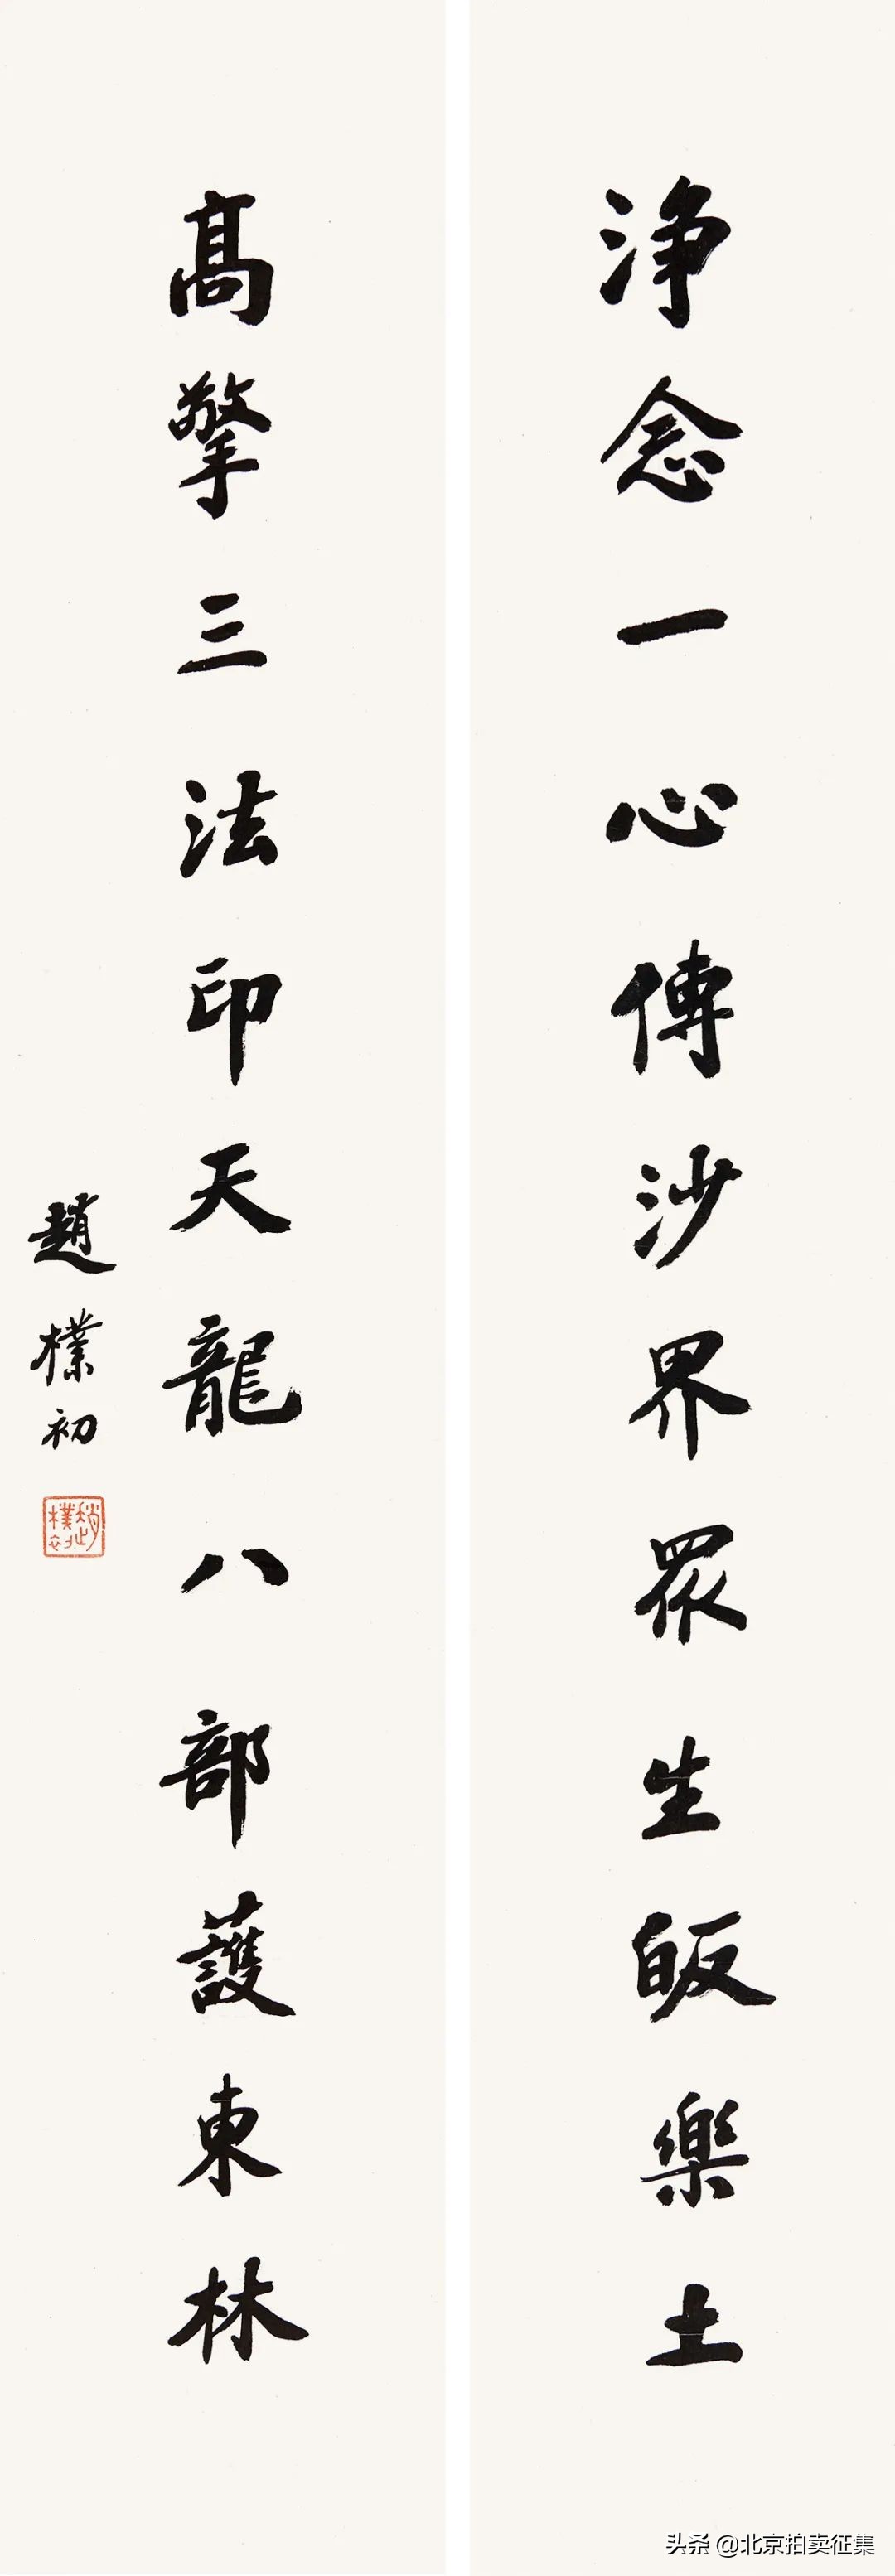 淨念一心傳沙界眾生皈樂土
高擎三法印天龍八部護東林
趙樸初
趙樸初
头条 @北京拍卖征集